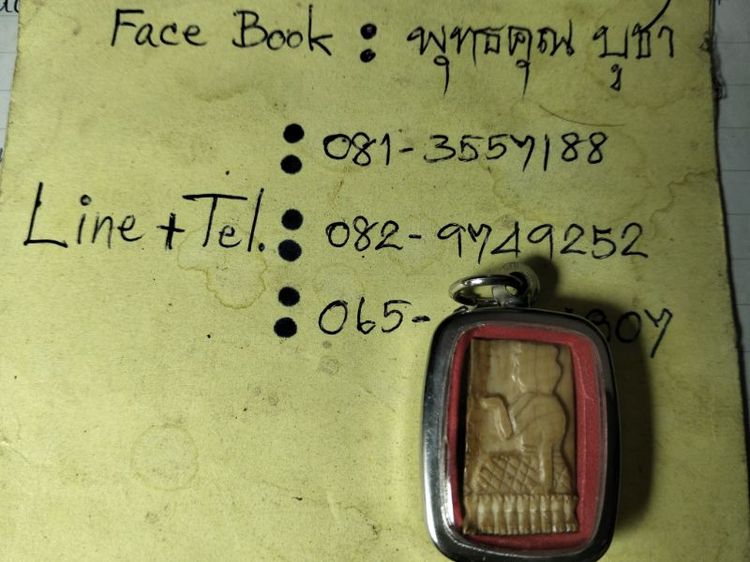 Face Book : พุทธคุณ บูชา
: 081-3557188
Line + Tel. : 082-9749252
: 065-